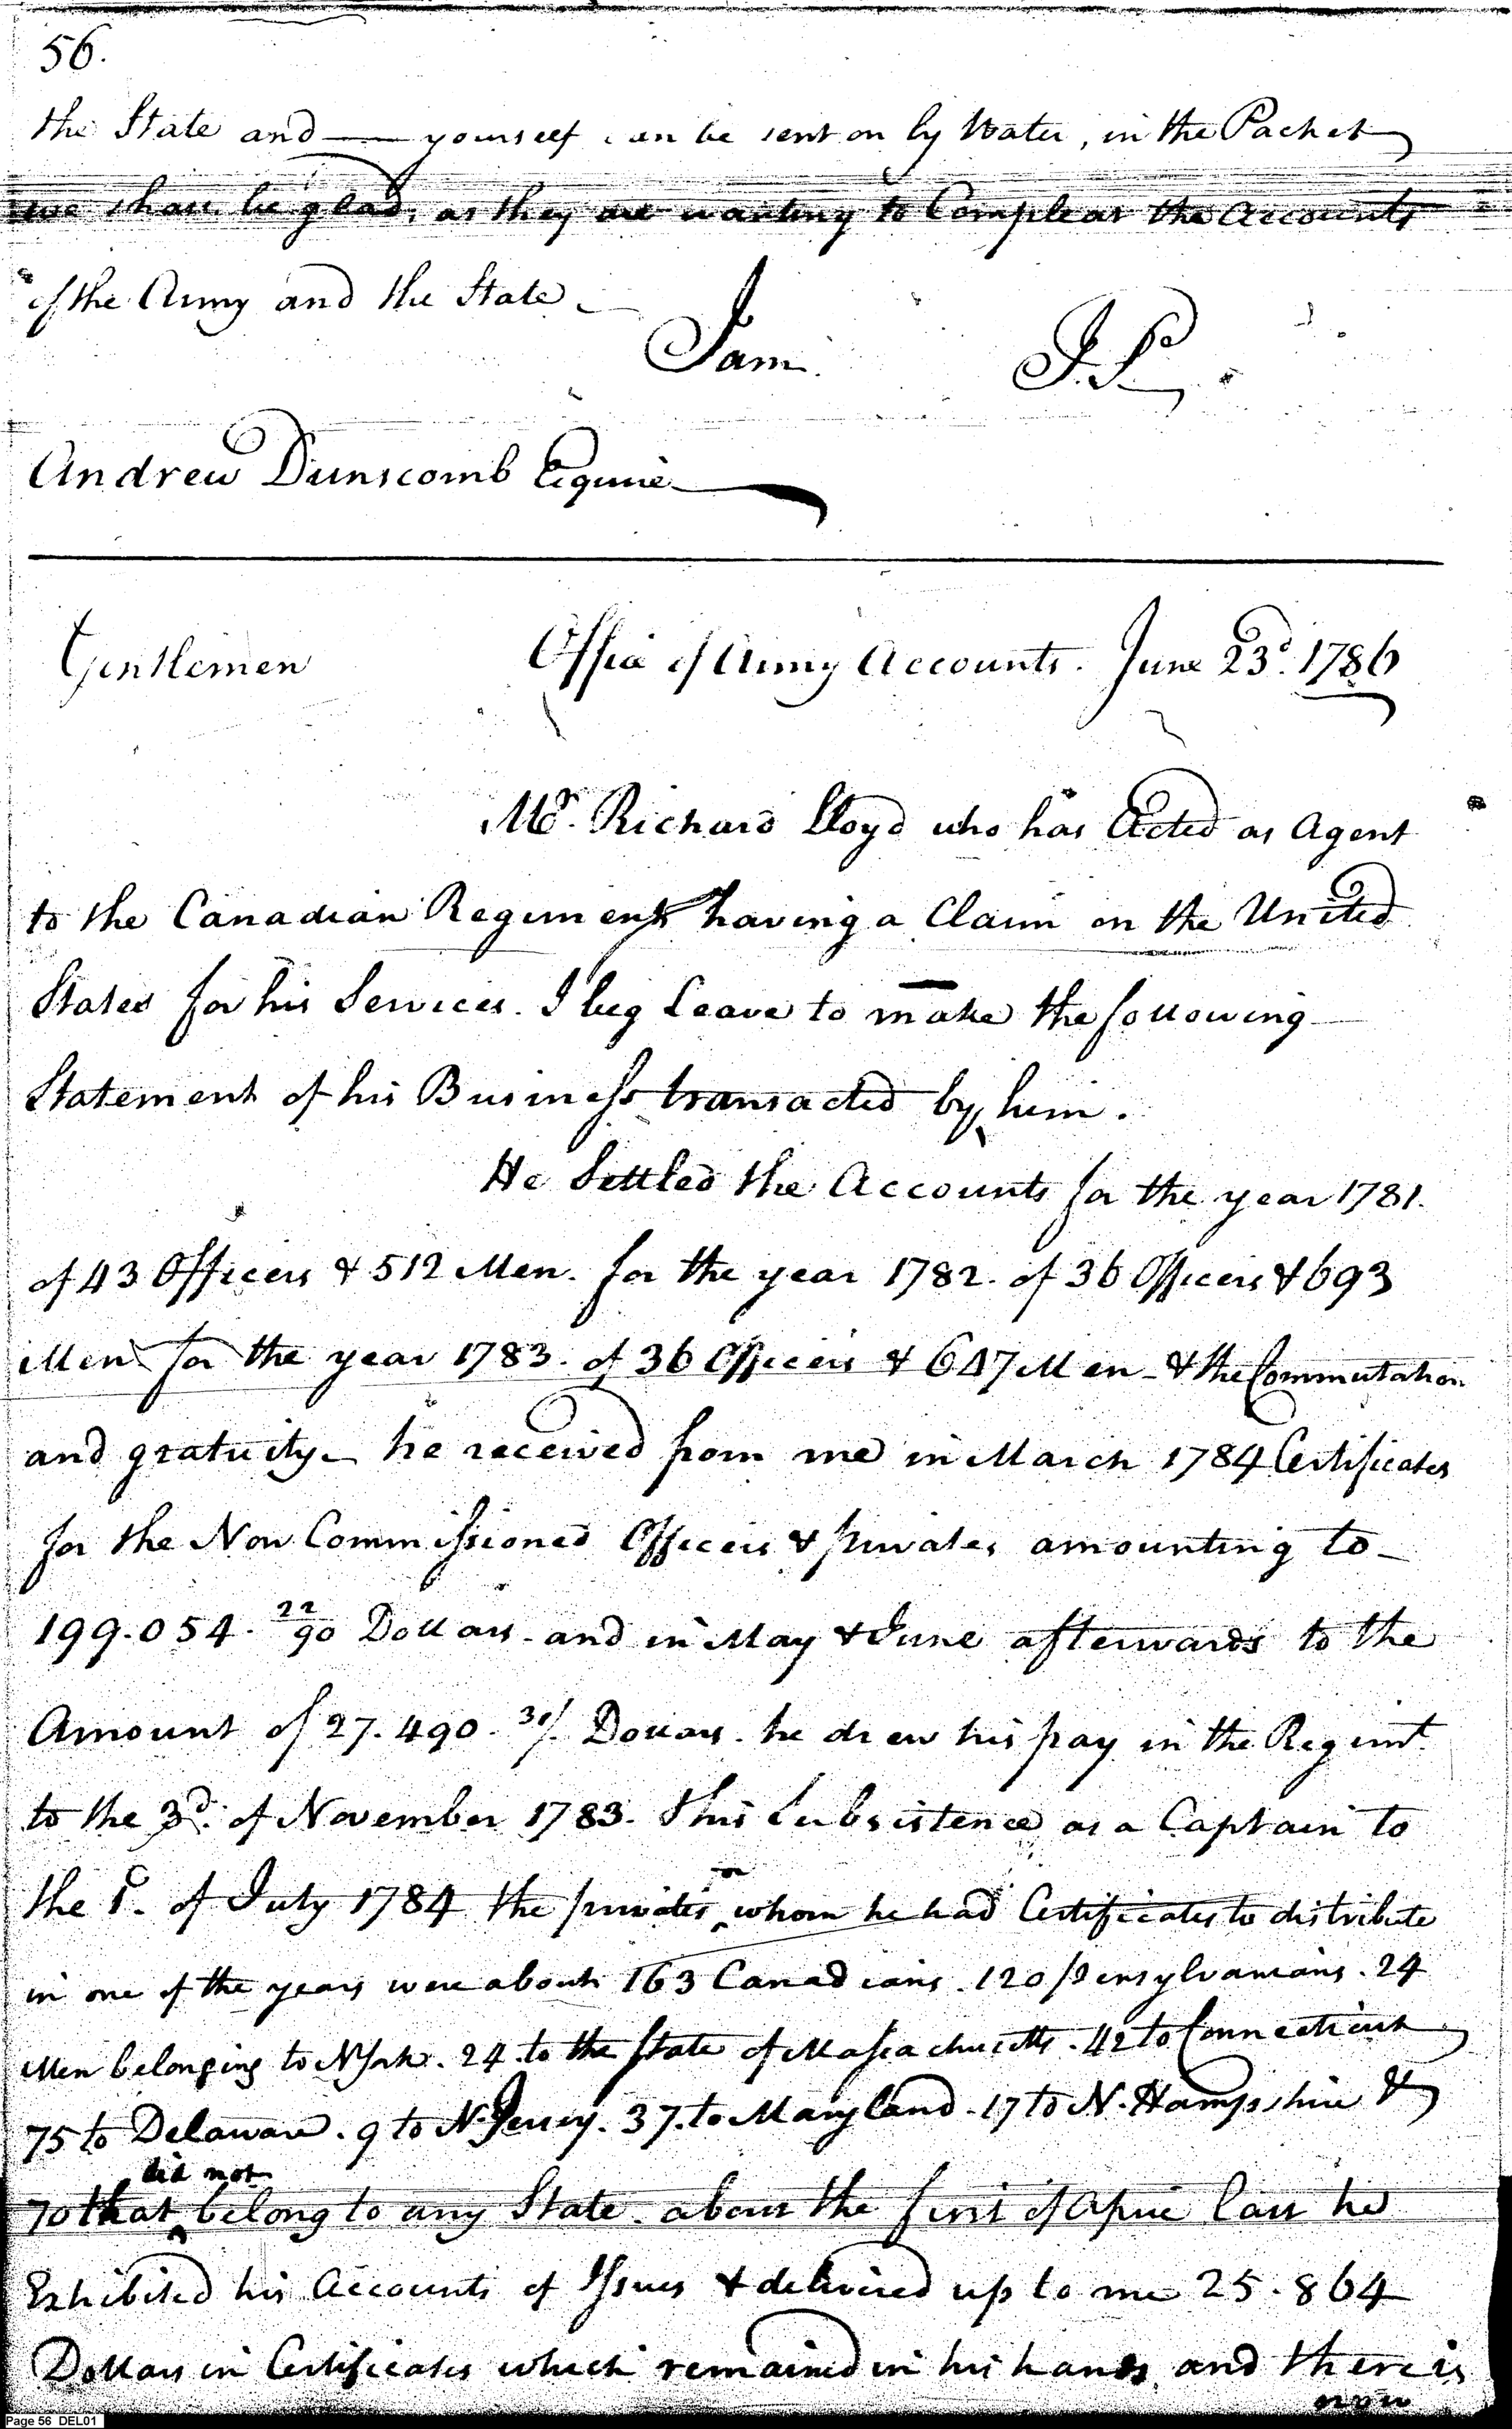 56.
the State and — yourself can be sent on by Water, in the Packet
we shall be glad, as they are wanting to Compleat the Accounts
of the Army and the State —
I am J. P.
Andrew Dunscomb Esquire
Gentlemen Office of Army Accounts. June 23d. 1786
Mr. Richard Lloyd who has Acted as Agent
to the Canadian Regiment having a Claim on the United
States for his Services. I beg leave to make the following
Statement of his Business transacted by him.
He Settled the Accounts for the year 1781.
of 43 Officers & 512 Men. for the year 1782. of 36 Officers & 693
Men for the year 1783. of 36 Officers & 647 Men - & the Commutation
and gratuity - he received from me in March 1784 Certificates
for the Non Commissioned Officers & privates amounting to -
199.054. 22/90 Dollars - and in May & June afterwards to the
Amount of 27.490. 31/. Dollars. he drew his pay in the Regimt.
to the 3d. of November 1783. this Subsistence as a Captain to
the 1. of July 1784 the privates for whom he had Certificates to distribute
in one of the years were about 163 Canadians. 120 Pensylvanians. 24
Men belonging to N York. 24. to the State of Massachusetts. 42 to Connecticut
75 to Delaware. 9 to N. Jersey. 37. to Maryland. 17 to N. Hampshire &
did not
70 that belong to any State. about the first of April last he
Exhibited his Accounts of Issues & delivered up to me 25.864
Dollars in Certificates which remained in his hands, and there is
now
Page 56 DEL01